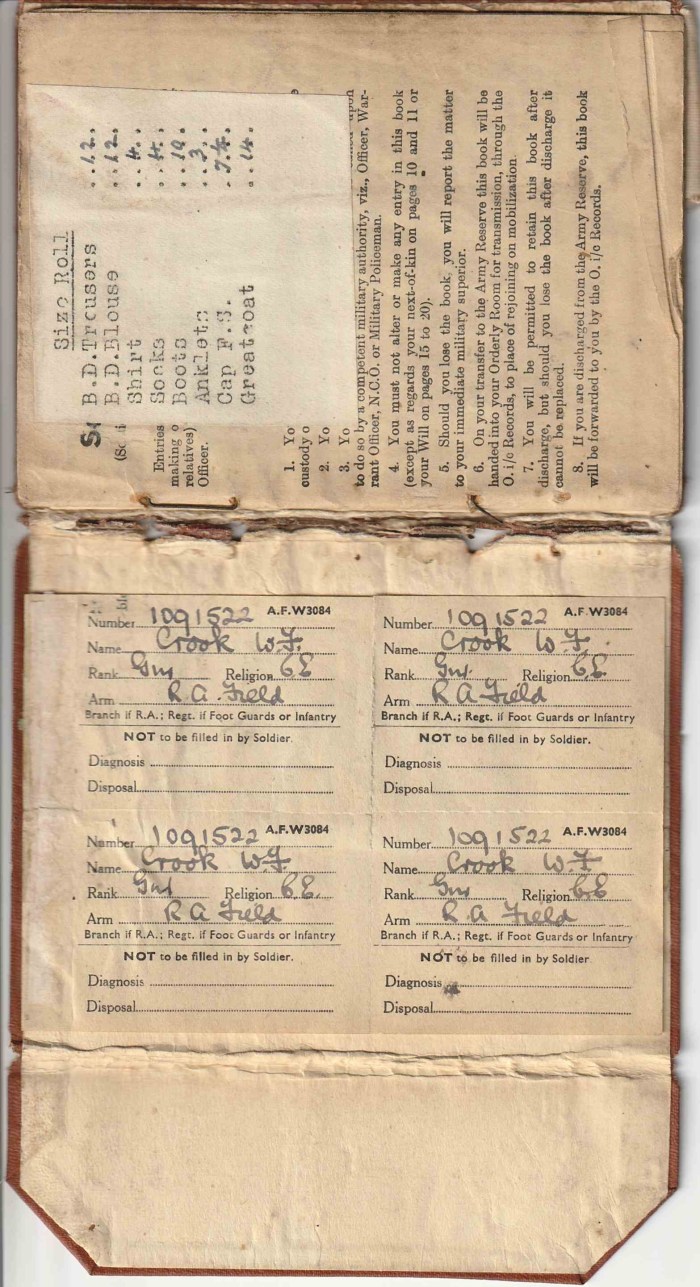 Size Roll
B.D.Trousers ..12.
B.D.Blouse ..12.
Shirt ..4.
Socks ..4.
Boots ..10.
Anklets ..3..
Cap F.S. .7¼.
Greatcoat ..14.
Entries
making o
relatives)
Officer.
1. Yo
custody o
2. Yo
3. Yo upon
to do so by a competent military authority, viz., Officer, War-
rant Officer, N.C.O. or Military Policeman.
4. You must not alter or make any entry in this book
(except as regards your next-of-kin on pages 10 and 11 or
your Will on pages 15 to 20).
5. Should you lose the book, you will report the matter
to your immediate military superior.
6. On your transfer to the Army Reserve this book will be
handed into your Orderly Room for transmission, through the
O. i/c Records, to place of rejoining on mobilization.
7. You will be permitted to retain this book after
discharge, but should you lose the book after discharge it
cannot be replaced.
8. If you are discharged from the Army Reserve, this book
will be forwarded to you by the O. i/c Records.
A.F.W3084
Number 1091522
Name Crook W.F.
Rank Gnr Religion C.E
Arm R.A. Field
Branch if R.A.; Regt. if Foot Guards or Infantry
NOT to be filled in by Soldier.
Diagnosis
Disposal
A.F.W3084
Number 1091522
Name Crook W.F.
Rank Gnr. Religion C.E.
Arm R A Field
Branch if R.A.; Regt. if Foot Guards or Infantry
NOT to be filled in by Soldier.
Diagnosis
Disposal
A.F.W3084
Number 1091522
Name Crook W.F.
Rank Gnr Religion C.E.
Arm R A Field
Branch if R.A.; Regt. if Foot Guards or Infantry
NOT to be filled in by Soldier.
Diagnosis
Disposal
A.F.W3084
Number 1091522
Name Crook W.F
Rank Gnr Religion C.E
Arm R A Field
Branch if R.A.; Regt. if Foot Guards or Infantry
NOT to be filled in by Soldier
Diagnosis
Disposal